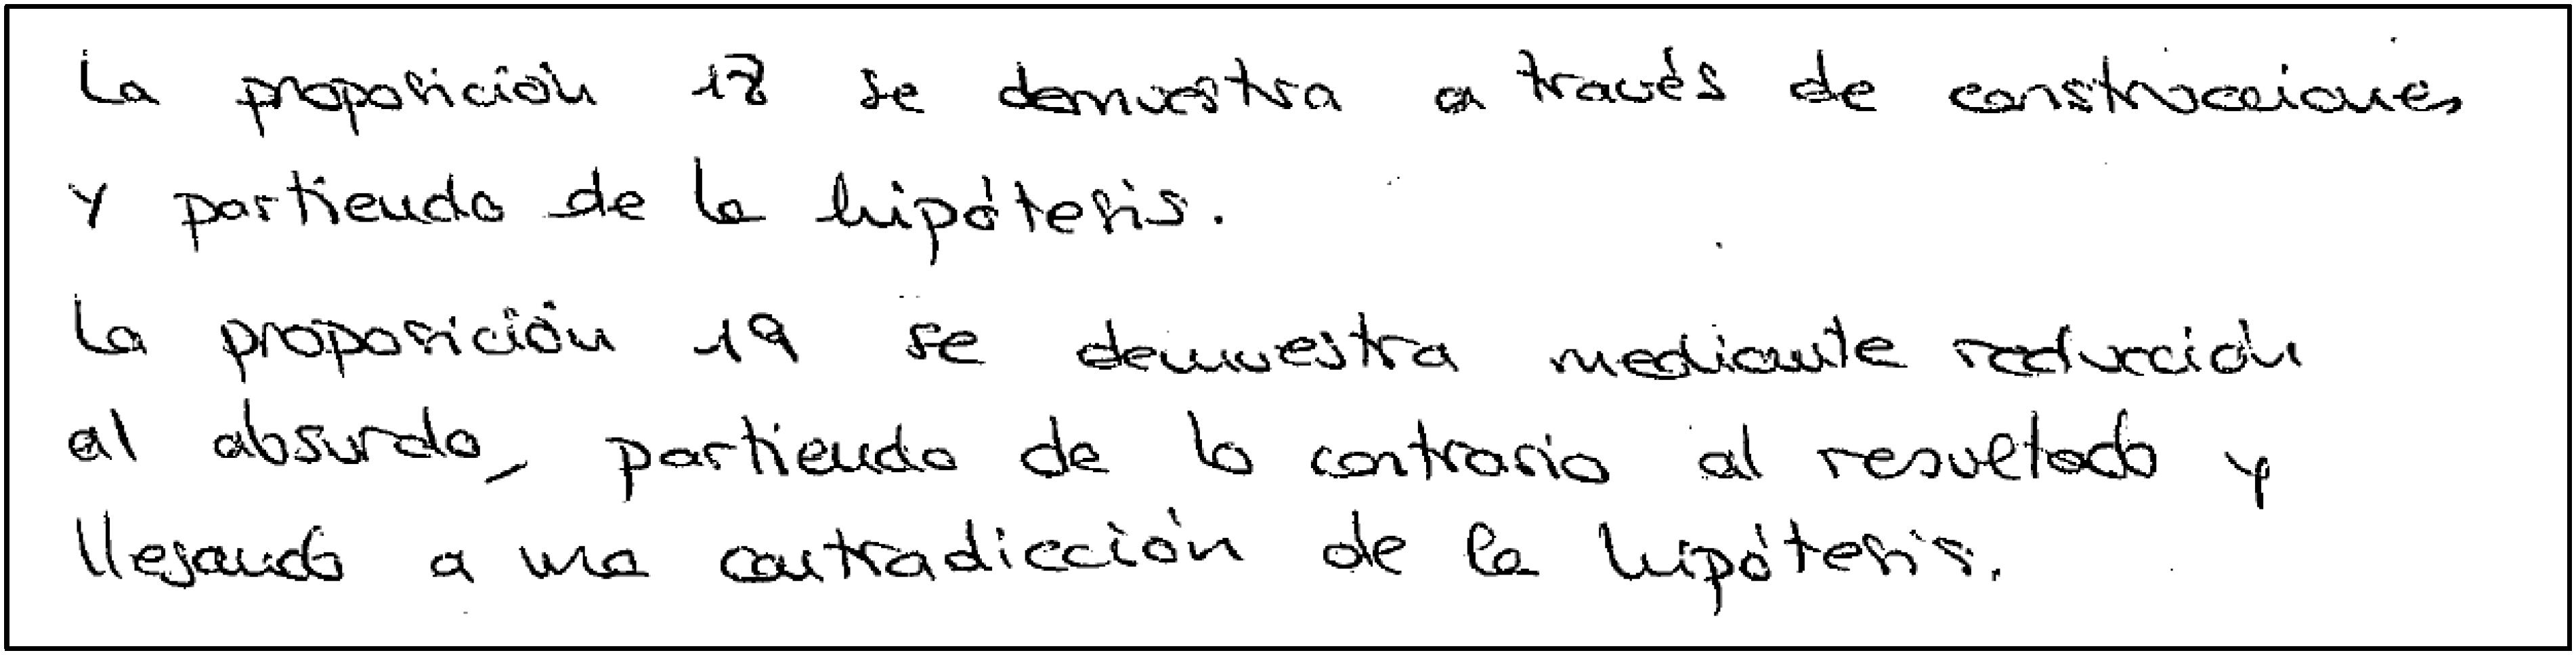 La proposición 18 se demuestra a través de construcciones
y partiendo de la hipótesis.
La proposición 19 se demuestra mediante reducción
al absurdo, partiendo de lo contrario al resultado y
llegando a una contradicción de la hipótesis.